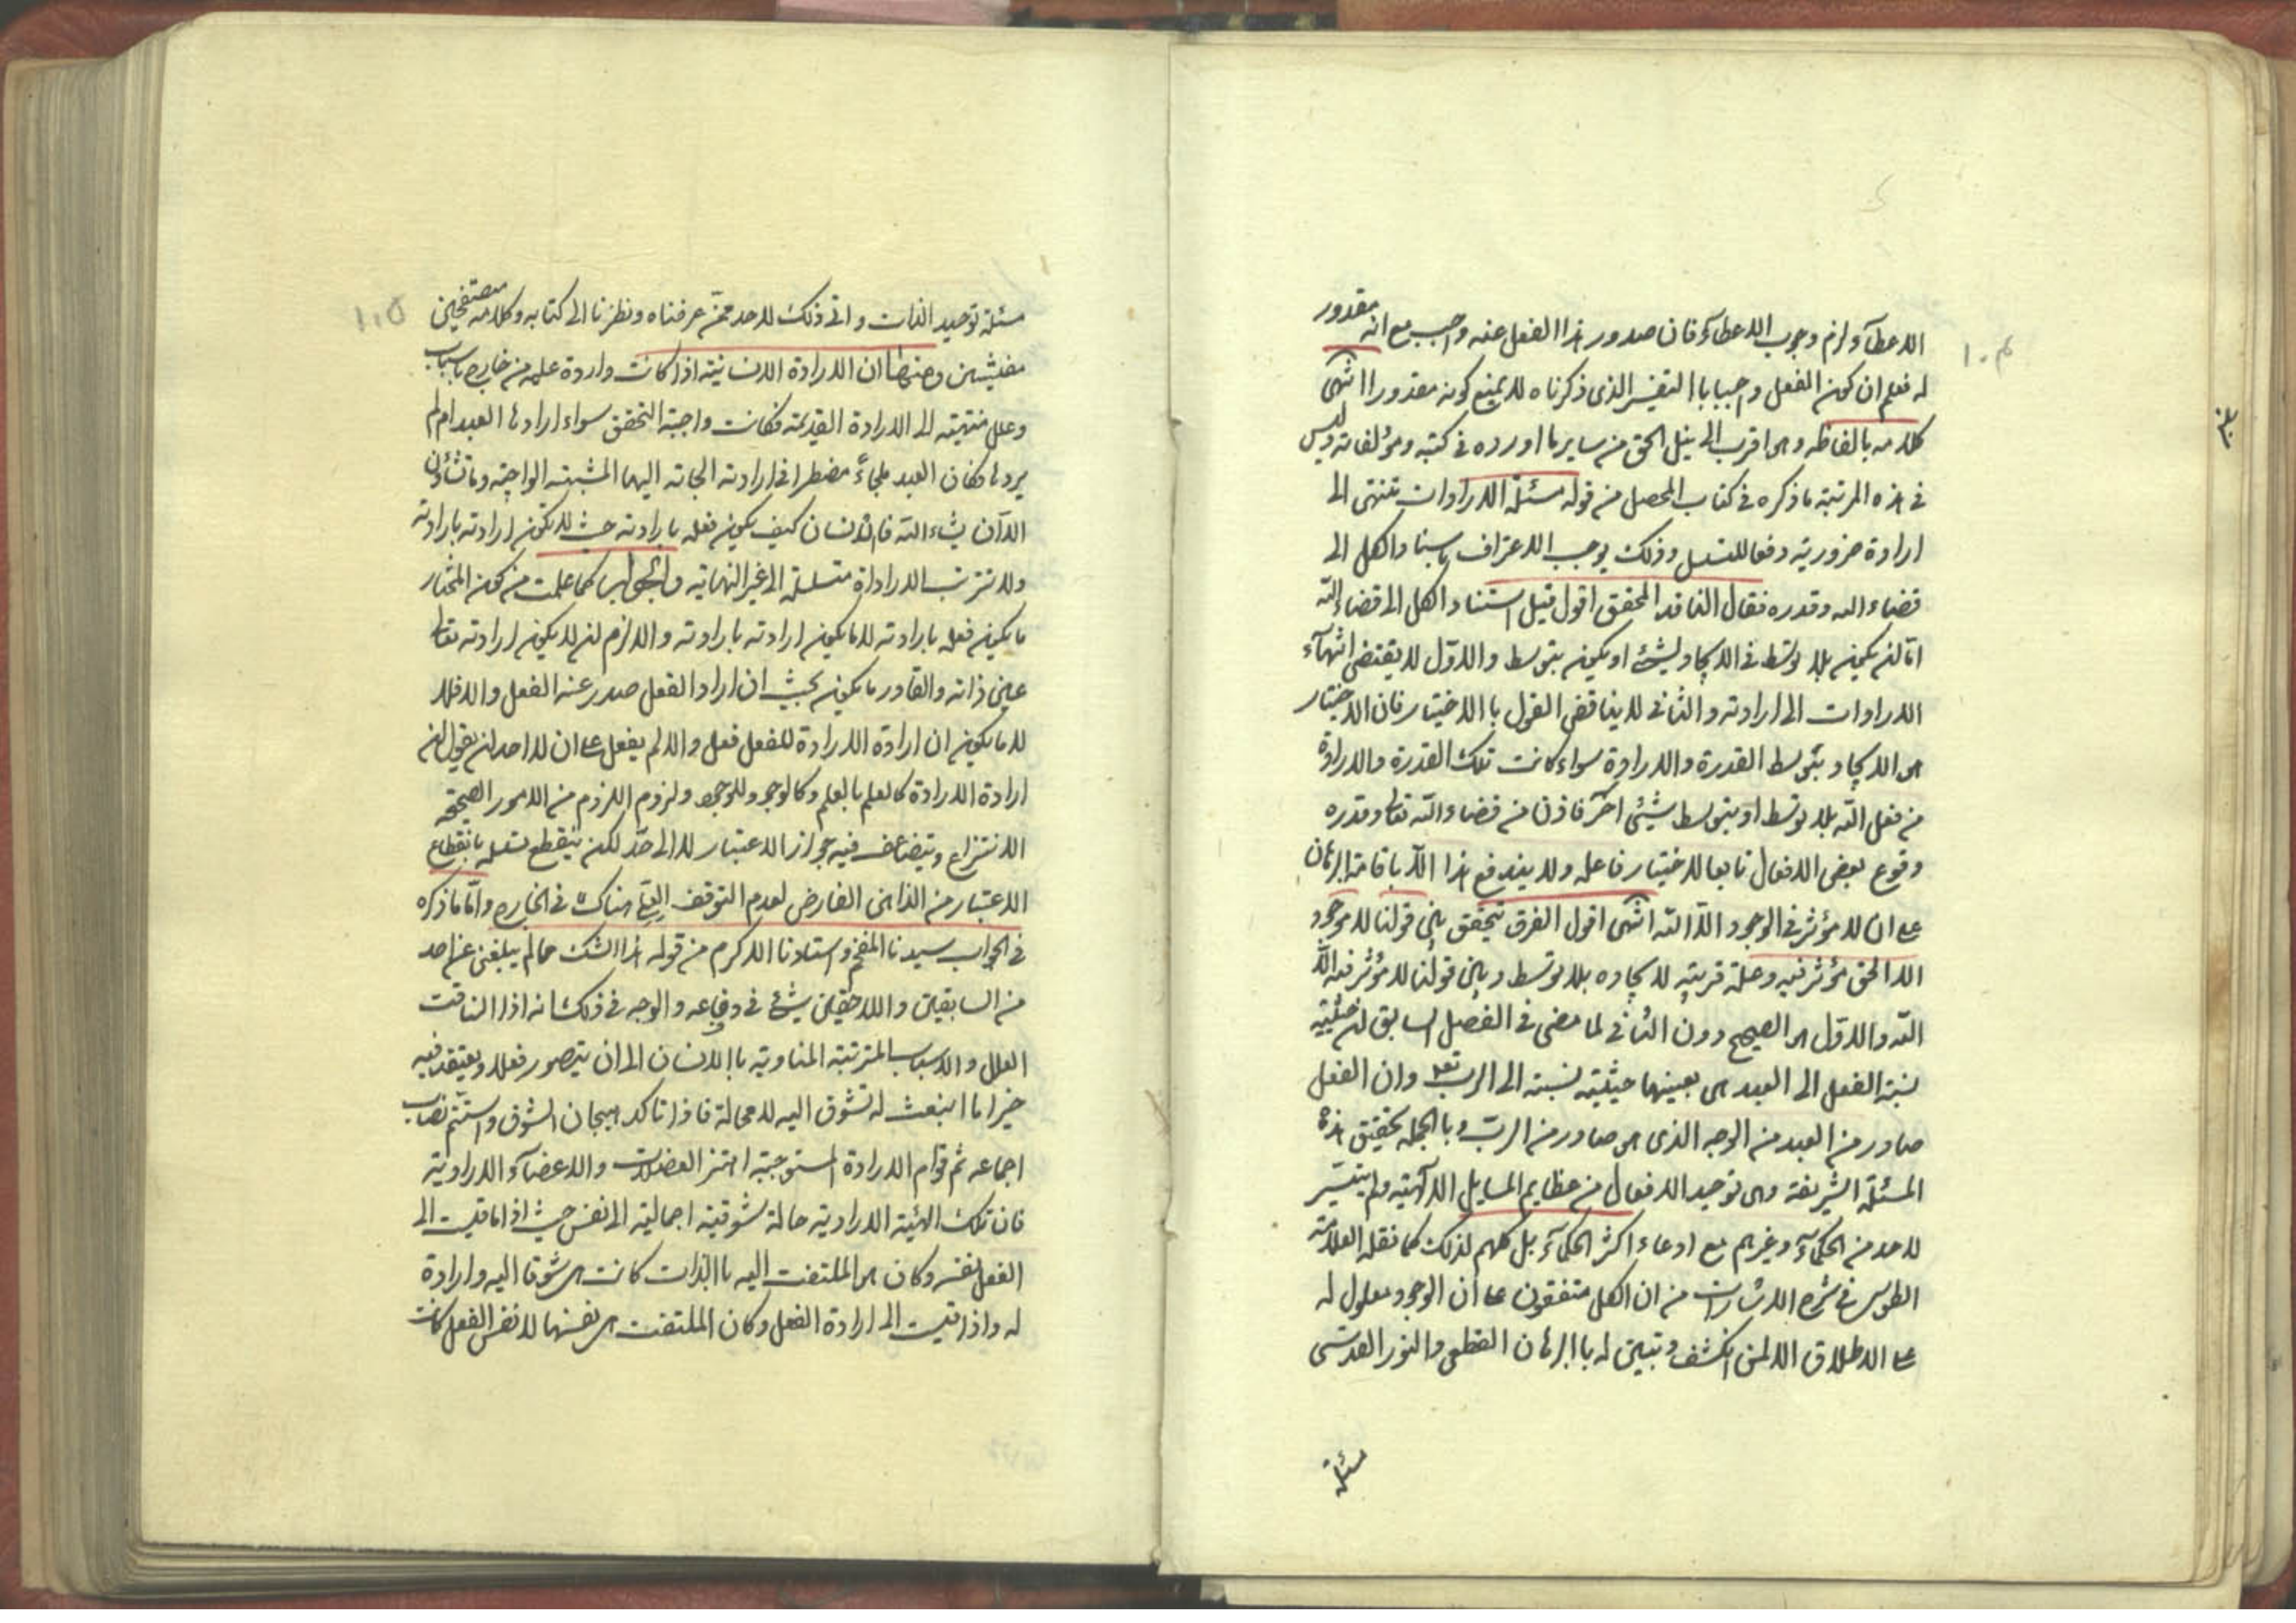 ١٠٤
الاعطآء ولزم وجوب الاعطاء فان صدور هذا الفعل عنه واجب مع انه مقدور
له فعلم ان كون الفعل واجبا باالتفسير الذى ذكرناه لا يمنع كونه مقدورا انتهى
كلامه بالفاظه وهو اقرب الى نيل الحق من ساير ما اورده فى كتبه ومؤلفاته وليس
فى هذه المرتبة ما ذكره فى كتاب المحصل من قوله مسئلة الارادات تنتهى الى
ارادة ضرورية دفعا للتسلسل وذلك يوجب الاعتراف باسناد الكل الى
قضاء الله وقدره فقال الناقد المحقق اقول قيل استناد الكل الى قضاء الله
اما ان يكون بلا توسط فى الايجاد لشئ او يكون بتوسط والاول لا يقتضى انتهآء
الارادات الى ارادته والثانى لا يناقض القول باالاختيار فان الاختيار
هو الايجاد بتوسط القدرة والارادة سواء كانت تلك القدرة والارادة
من فعل الله بلا توسط او بتوسط شيئ اخر فاذن من قضاء الله تعالى وقدره
وقوع بعض الافعال تابعا لاختيار فاعله ولا يندفع هذا الا باقامة البرهان
على ان لا مؤثر فى الوجود الا الله انتهى اقول الفرق يتحقق بين قولنا لا موجود
الا الحق مؤثر فيه وعلة قريبة لايجاده بلا توسط وبين قولنا لا مؤثر فيه الا
الله والاول هو الصحيح دون الثانى لما مضى فى الفصل السابق ان حيثية
نسبة الفعل الى العبد هى بعينها حيثية نسبته الى الرب تعالى وان الفعل
صادر من العبد من الوجه الذى هو صادر من الرب وبا الجملة تحقيق هذه
المسئلة الشريفة وهى توحيد الافعال من عظايم المسايل الالهية ولم يتيسر
لاحد من الحكمآء وغيرهم مع ادعاء اكثر الحكمآء بل كلهم لذلك كما نقله العلامة
الطوسى فى شرح الاشارات من ان الكل متفقون على ان الوجود معلول له
على الاطلاق الا لمن انكشف وتبين له با البرهان القطعى والنور القدسى
مسئلة
١٠٥
مسئلة توحيد الذات وانى ذلك لاحد ممن عرفناه ونظرنا الى كتابه وكلامه متصفحين
مفتشين ومنها ان الارادة الانسانية اذا كانت واردة عليه من خارج باسباب
وعلل منتهية الى الارادة القديمة فكانت واجبة التحقق سواء ارادها العبد ام لم
يردها فكان العبد ملجاءً مضطرا فى ارادته الجاته اليها المشية الواجبة وما تشاؤن
الا ان يشاء الله فالانسان كيف يكون فعله بارادته حيث لا تكون ارادته بارادته
ولا تترتب الارادات متسلسلة الى غير النهاية والجواب كما علمت من كون المختار
ما يكون فعله بارادته لا ما يكون ارادته بارادته واللازم ان لا يكون ارادته تعالى
عين ذاته والقادر ما يكون بحيث ان اراد الفعل صدر عنه الفعل والا فلا
لا ما يكون ان ارادة الارادة للفعل فعل والا لم يفعل على ان لاحد ان يقول ان
ارادة الارادة كالعلم بالعلم وكالوجود للوجود ولزوم اللزوم من الامور الصحيحة
الانتزاع ويتضاعف فيه جواز الاعتبار لا الى حد لكن ينقطع تسلسله بانقطاع
الاعتبار من الذاهن الفارض لعدم التوقف العلى هناك فى الخارج واما ما ذكره
فى الجواب سيدنا المفخم واستادنا الاكرم من قوله هذا الشك مما لم يبلغنى عن احد
من السابقين واللاحقين شئ فى دفاعه والوجه فى ذلك انه اذا انساقت
العلل والاسباب المترتبة المتادية باالانسان الى ان يتصور فعلا ويعتقد فيه
خيرا ما انبعث له تشوق اليه لا محالة فاذا تاكد هيجان الشوق واستتم نصاب
اجماعه ثم قوام الارادة المستوجبة اهتزاز العضلات والاعضآء الادوية
فان تلك الهيئة الارادية حالة شوقية اجمالية الى نفس حيث اذا ما قيست الى
الفعل نفسه وكان هو الملتفت اليه باالذات كانت هى شوقا اليه وارادة
له واذا قيست الى ارادة الفعل وكان الملتفت هى نفسها لا نفس الفعل كانت